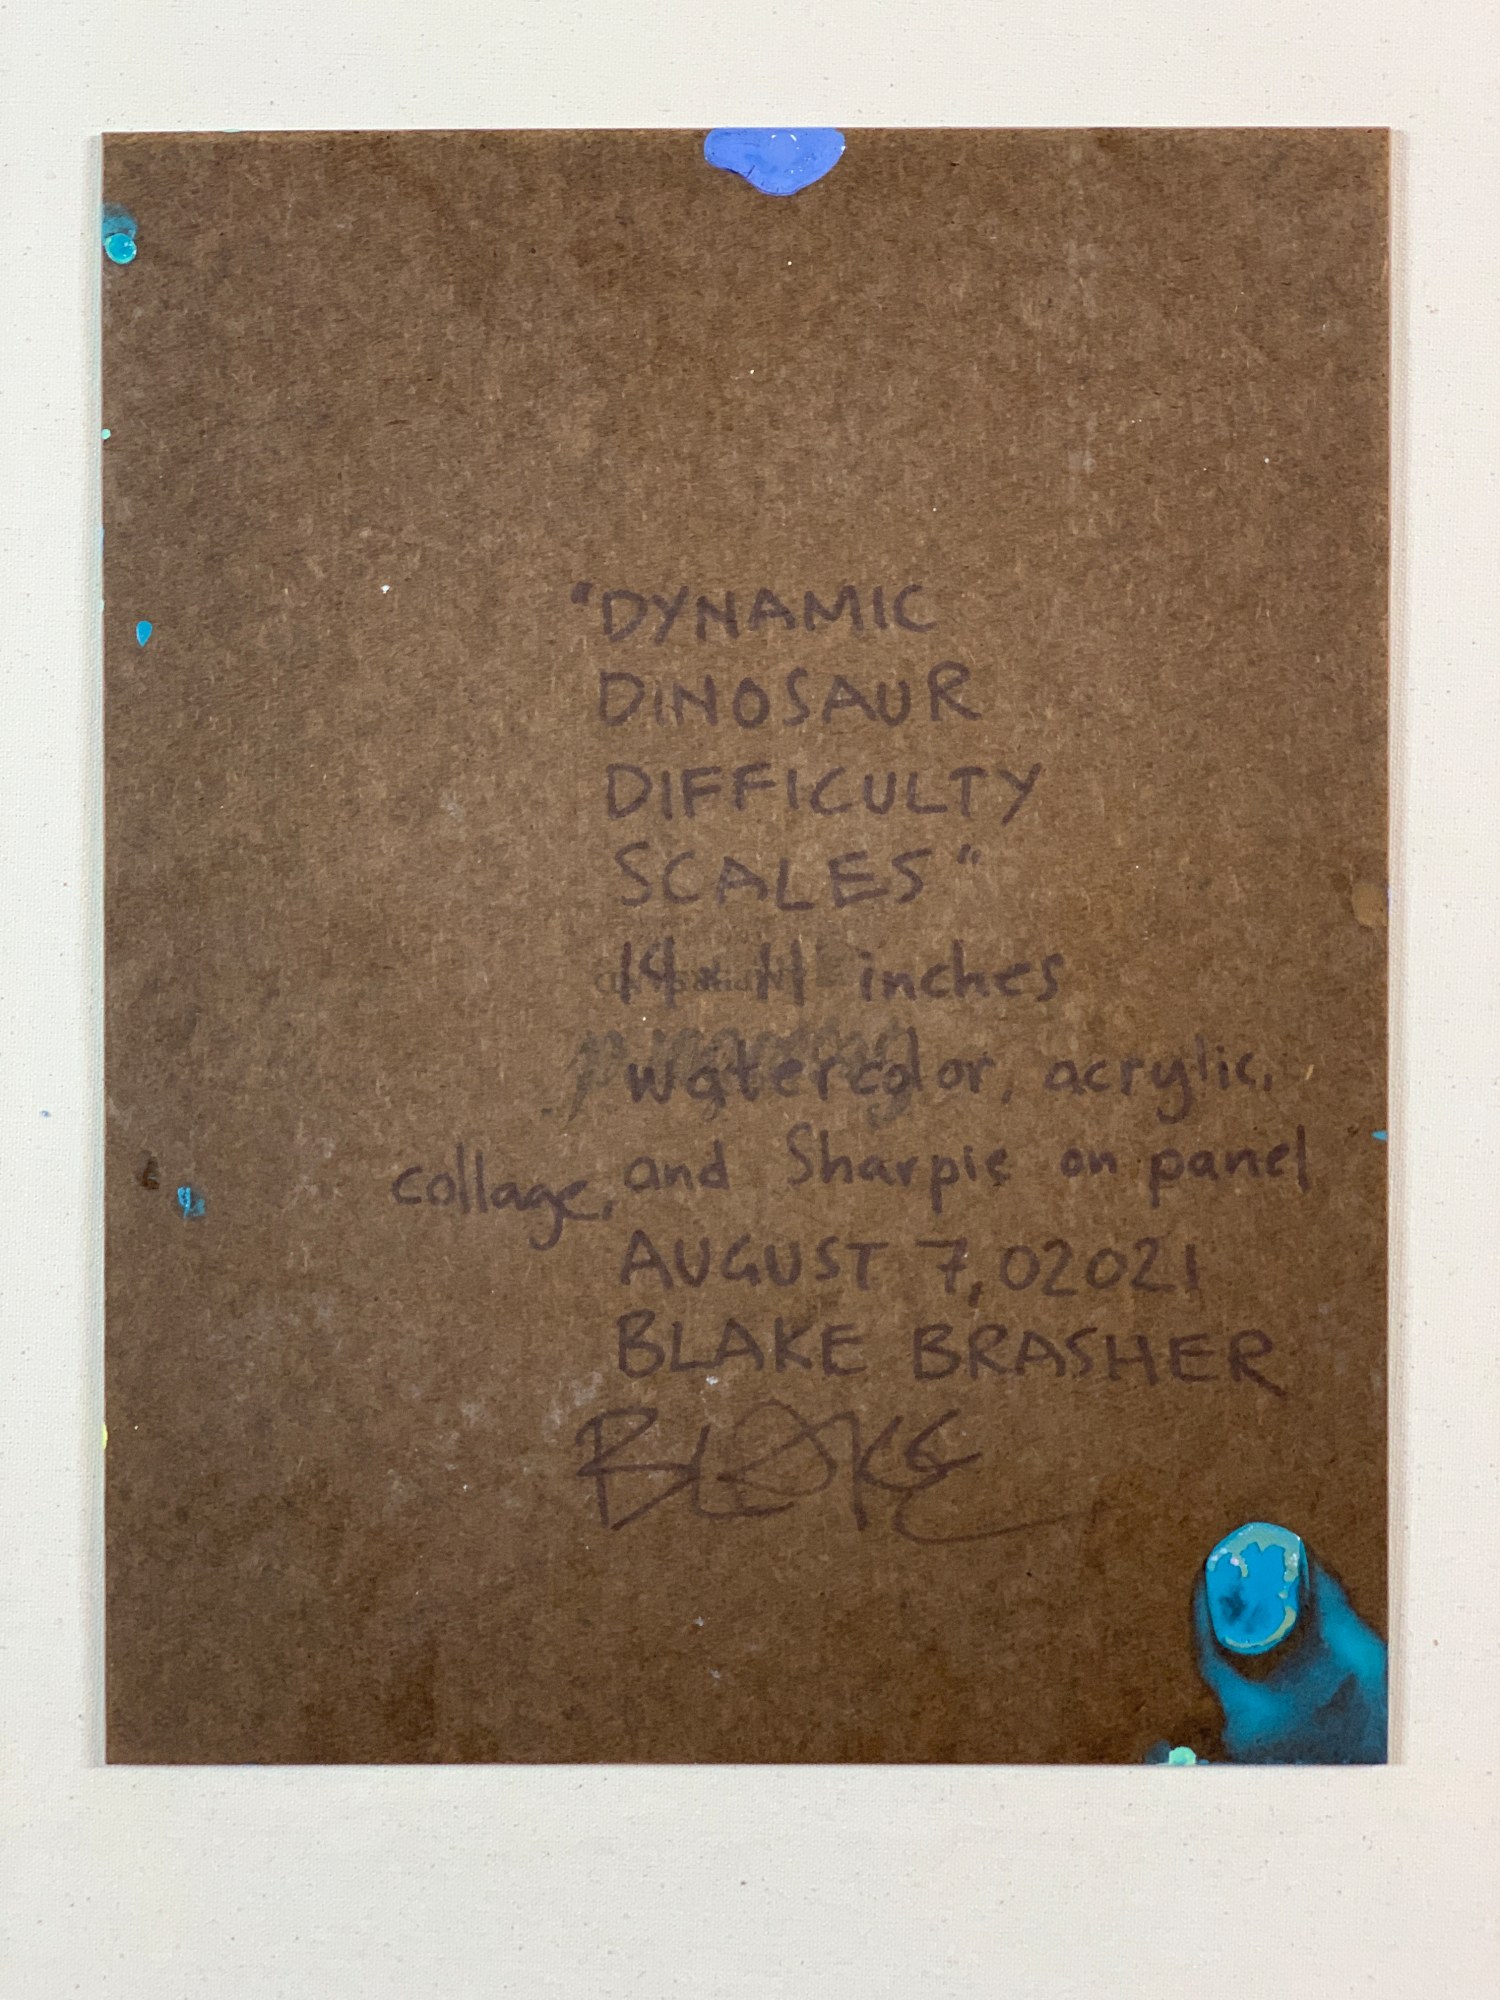 "DYNAMIC
DINOSAUR
DIFFICULTY
SCALES"
14 x 11 inches
watercolor, acrylic,
collage, and Sharpie on panel
AUGUST 7, 02021
BLAKE BRASHER
BLAKE